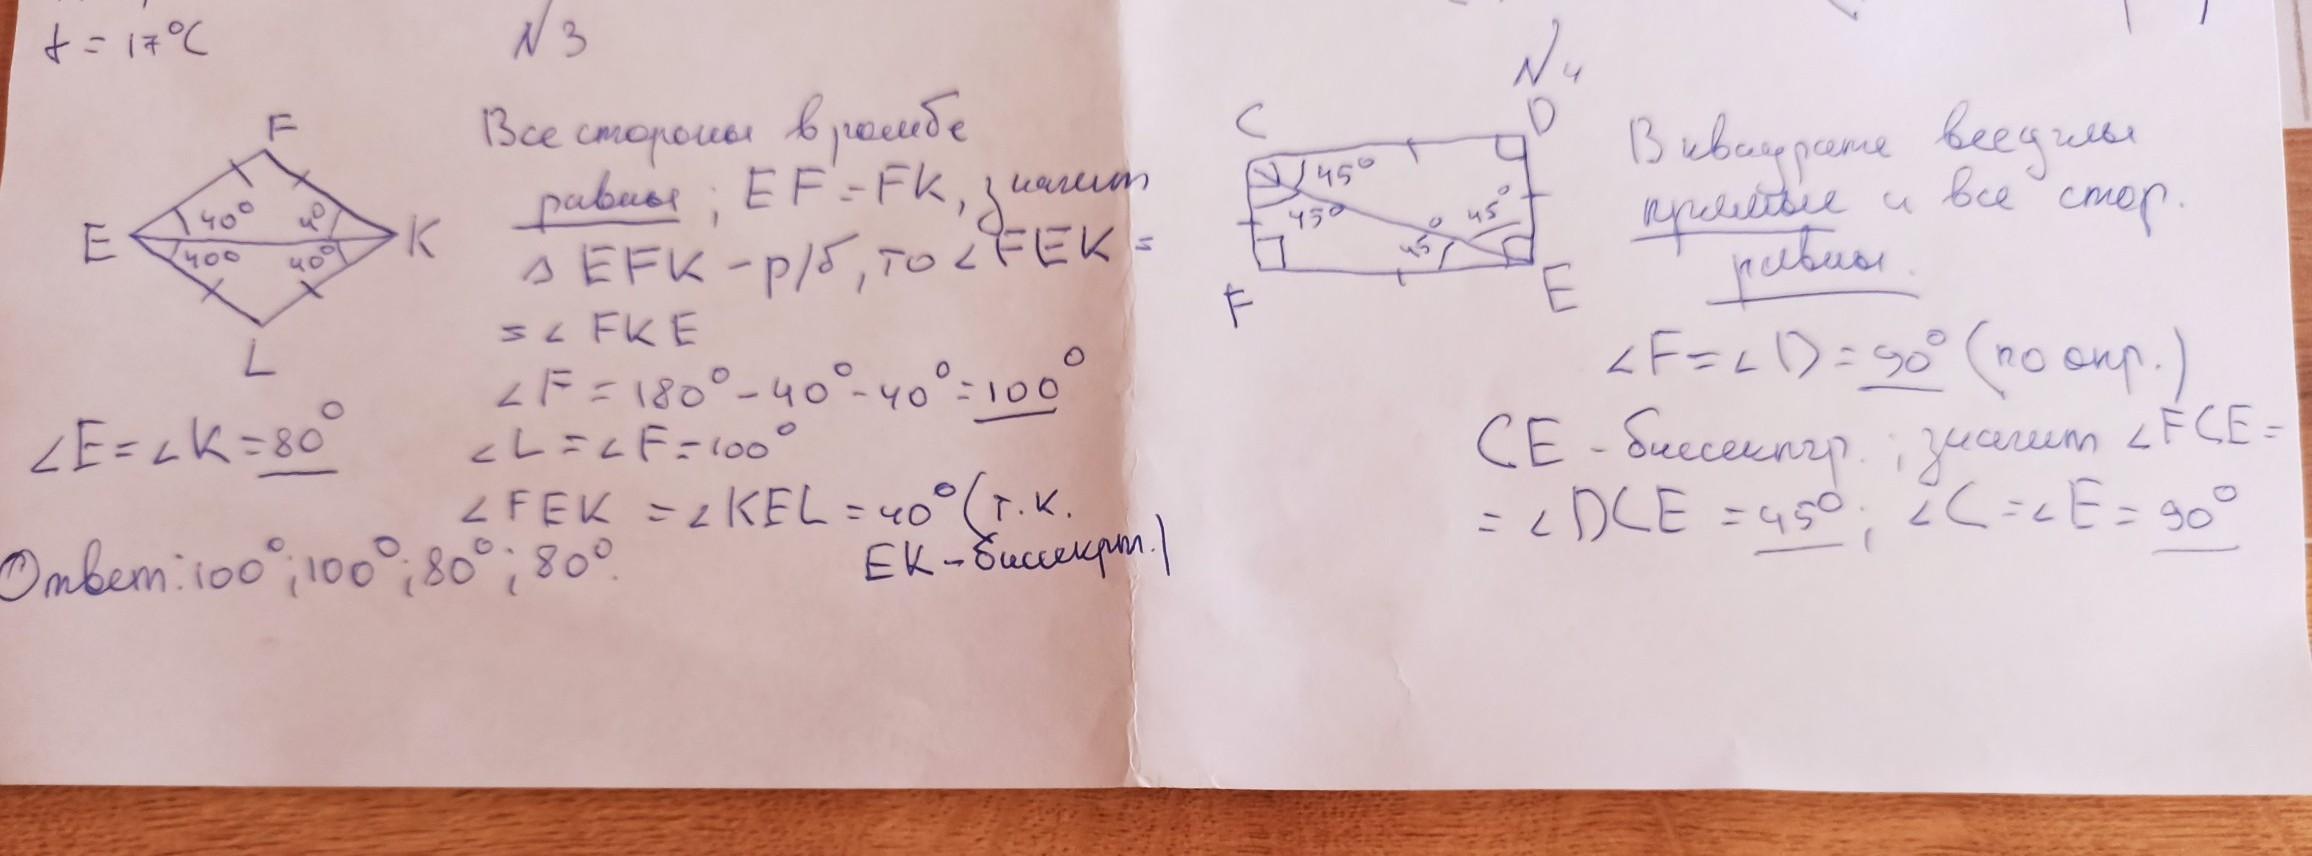 t = 17°C
N3
F
E
K
L
40°
40°
400
40°
Все стороны в ромбе
равны; EF = FK, значит
△ EFK - р/б, то ∠FEK =
= ∠ FKE
∠F = 180° - 40° - 40° = 100°
∠L = ∠F = 100°
∠FEK = ∠KEL = 40° (т.к.
EK - биссект.)
∠E = ∠K = 80°
Ответ: 100°; 100°; 80°; 80°.
N4
C
D
F
E
45°
45°
45°
45°
В квадрате все углы
прямые и все стор.
равны.
∠F = ∠D = 90° (по опр.)
CE - биссектр.; значит ∠FCE =
= ∠DCE = 45°; ∠C = ∠E = 90°